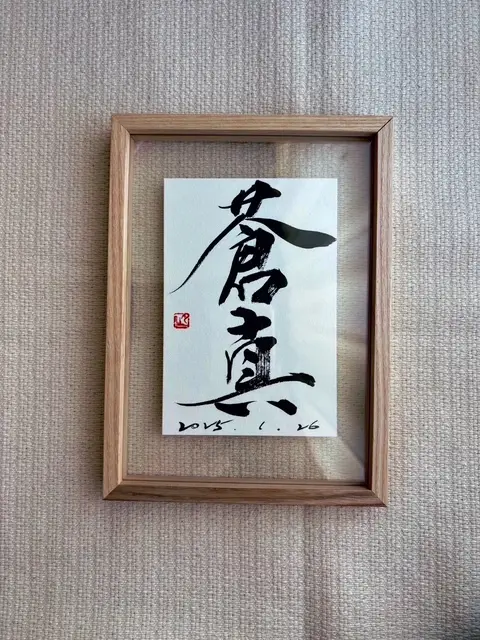 蒼真
2025.1.26